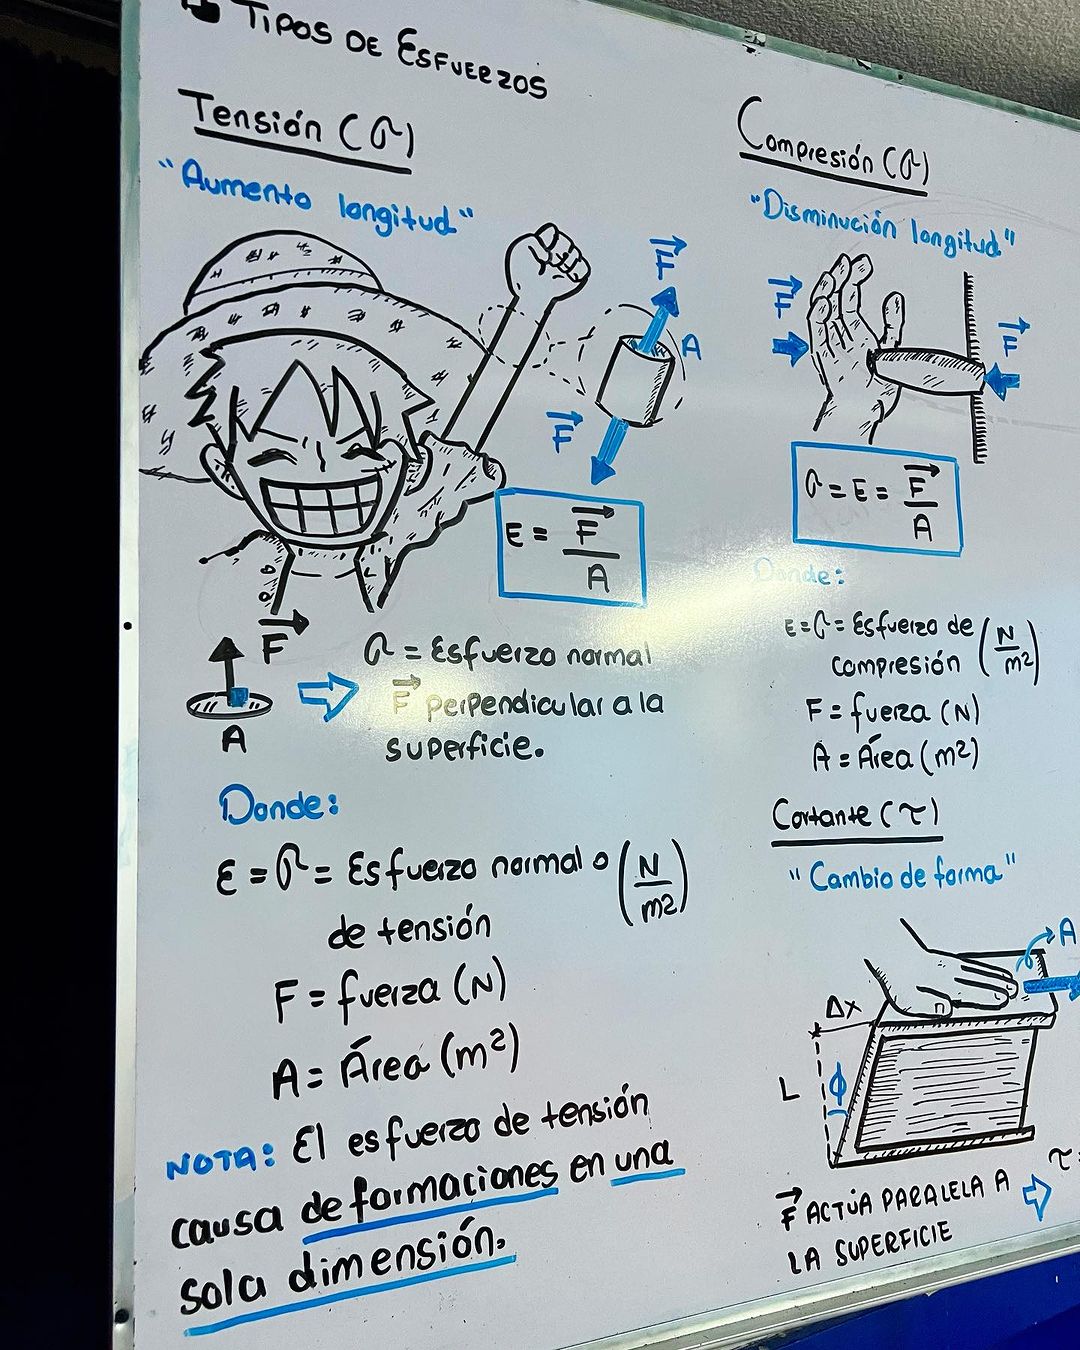 TIPOS DE ESFUERZOS
Tensión (σ)
"Aumento longitud"
F
A
F
E = F
A
F
A
σ = Esfuerzo normal
F perpendicular a la
superficie.
Donde:
E = σ = Esfuerzo normal o (N/m²)
de tensión
F = fuerza (N)
A = Área (m²)
NOTA: El esfuerzo de tensión
causa deformaciones en una
sola dimensión.
Compresión (σ)
"Disminución longitud"
F
F
σ = E = F
A
Donde:
E = σ = Esfuerzo de (N/m²)
compresión
F = fuerza (N)
A = Área (m²)
Cortante (τ)
"Cambio de forma"
A
Δx
L
ϕ
τ =
F ACTÚA PARALELA A
LA SUPERFICIE